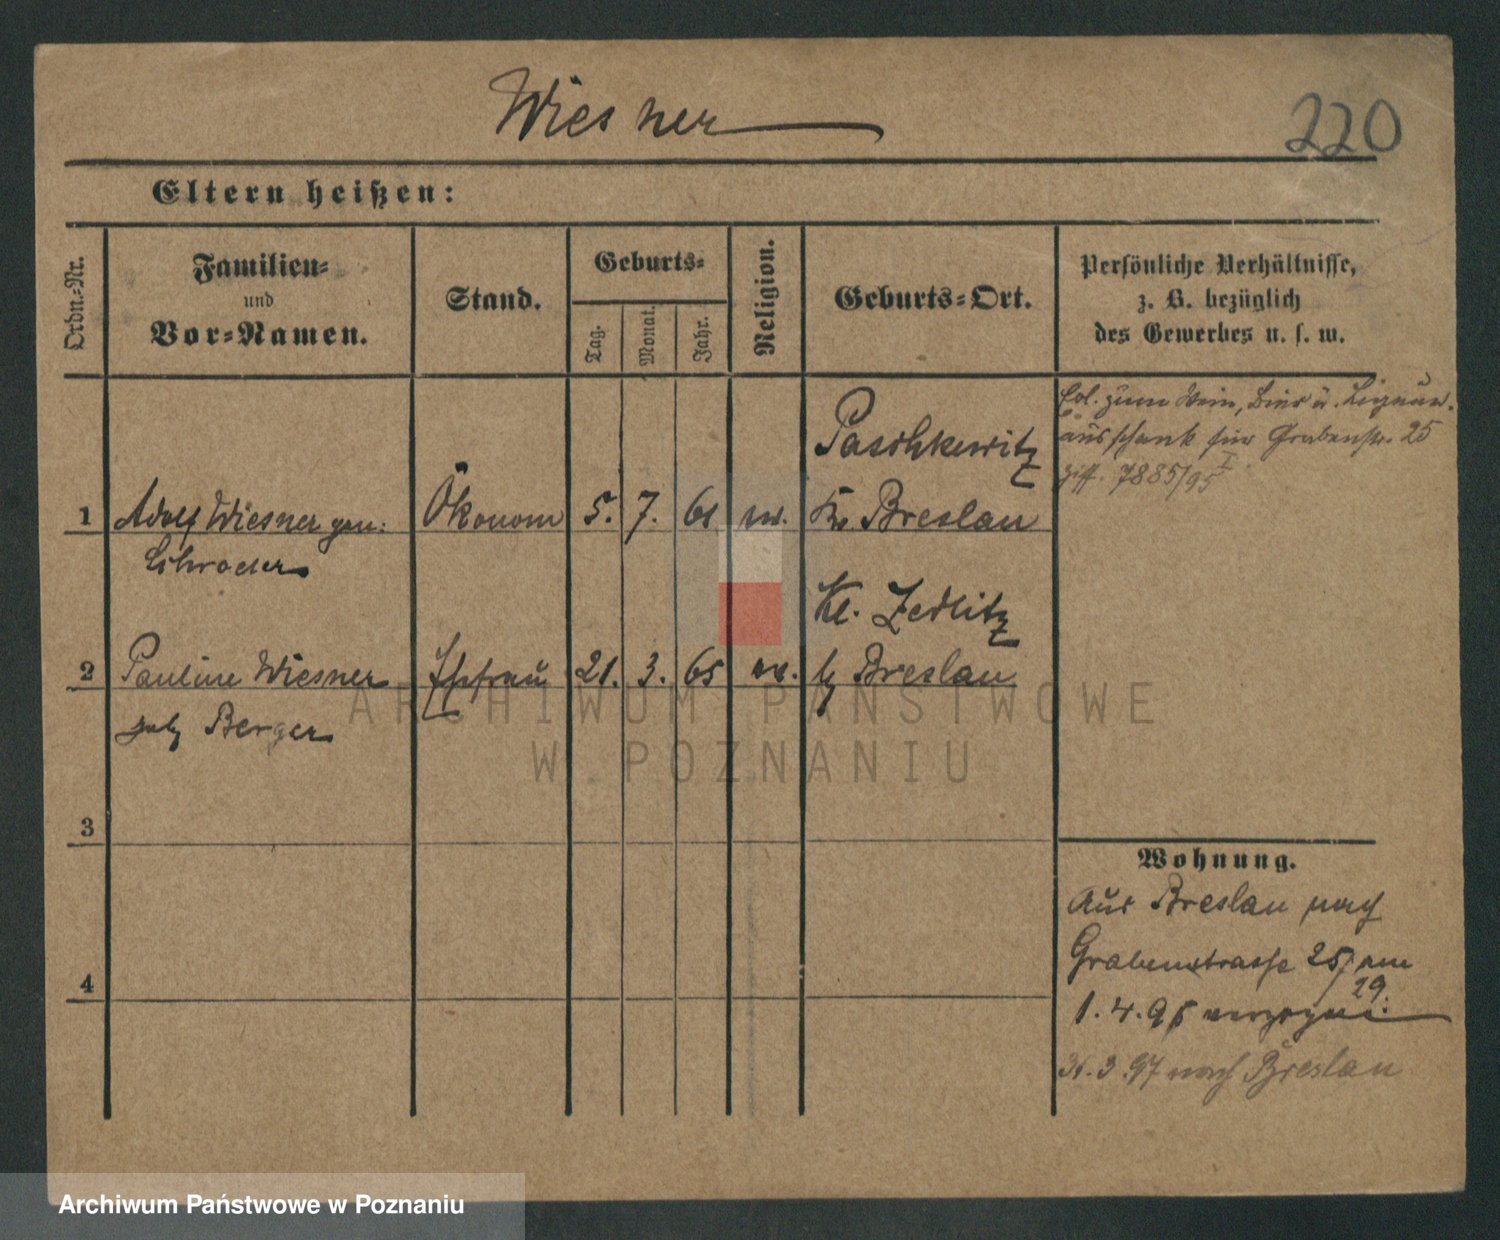 Wiesner
220
Eltern heißen:
Ordn.-Nr.
Familien-
und
Vor-Namen.
Stand.
Geburts-
Tag.
Monat.
Jahr.
Religion.
Geburts-Ort.
Persönliche Verhältnisse,
z. B. bezüglich
des Gewerbes u. s. w.
zum Wein, Bier u.
ausschank für Grabenstr. 25
7885/95 I
Paschkewitz
1 Adolf Wiesner gen: Ökonom 5. 7. 61 Kr Breslau
Schroeder
Kl. Zedlitz
2 Pauline Wiesner Ehefrau 21. 3. 65 b/ Breslau
geb Berger
ARCHIWUM PAŃSTWOWE
W POZNANIU
3
4
Wohnung.
Aus Breslau nach
Grabenstrasse 25/ am
29.
1. 4. 95 verzogen.
31.3.97 nach Breslau
Archiwum Państwowe w Poznaniu